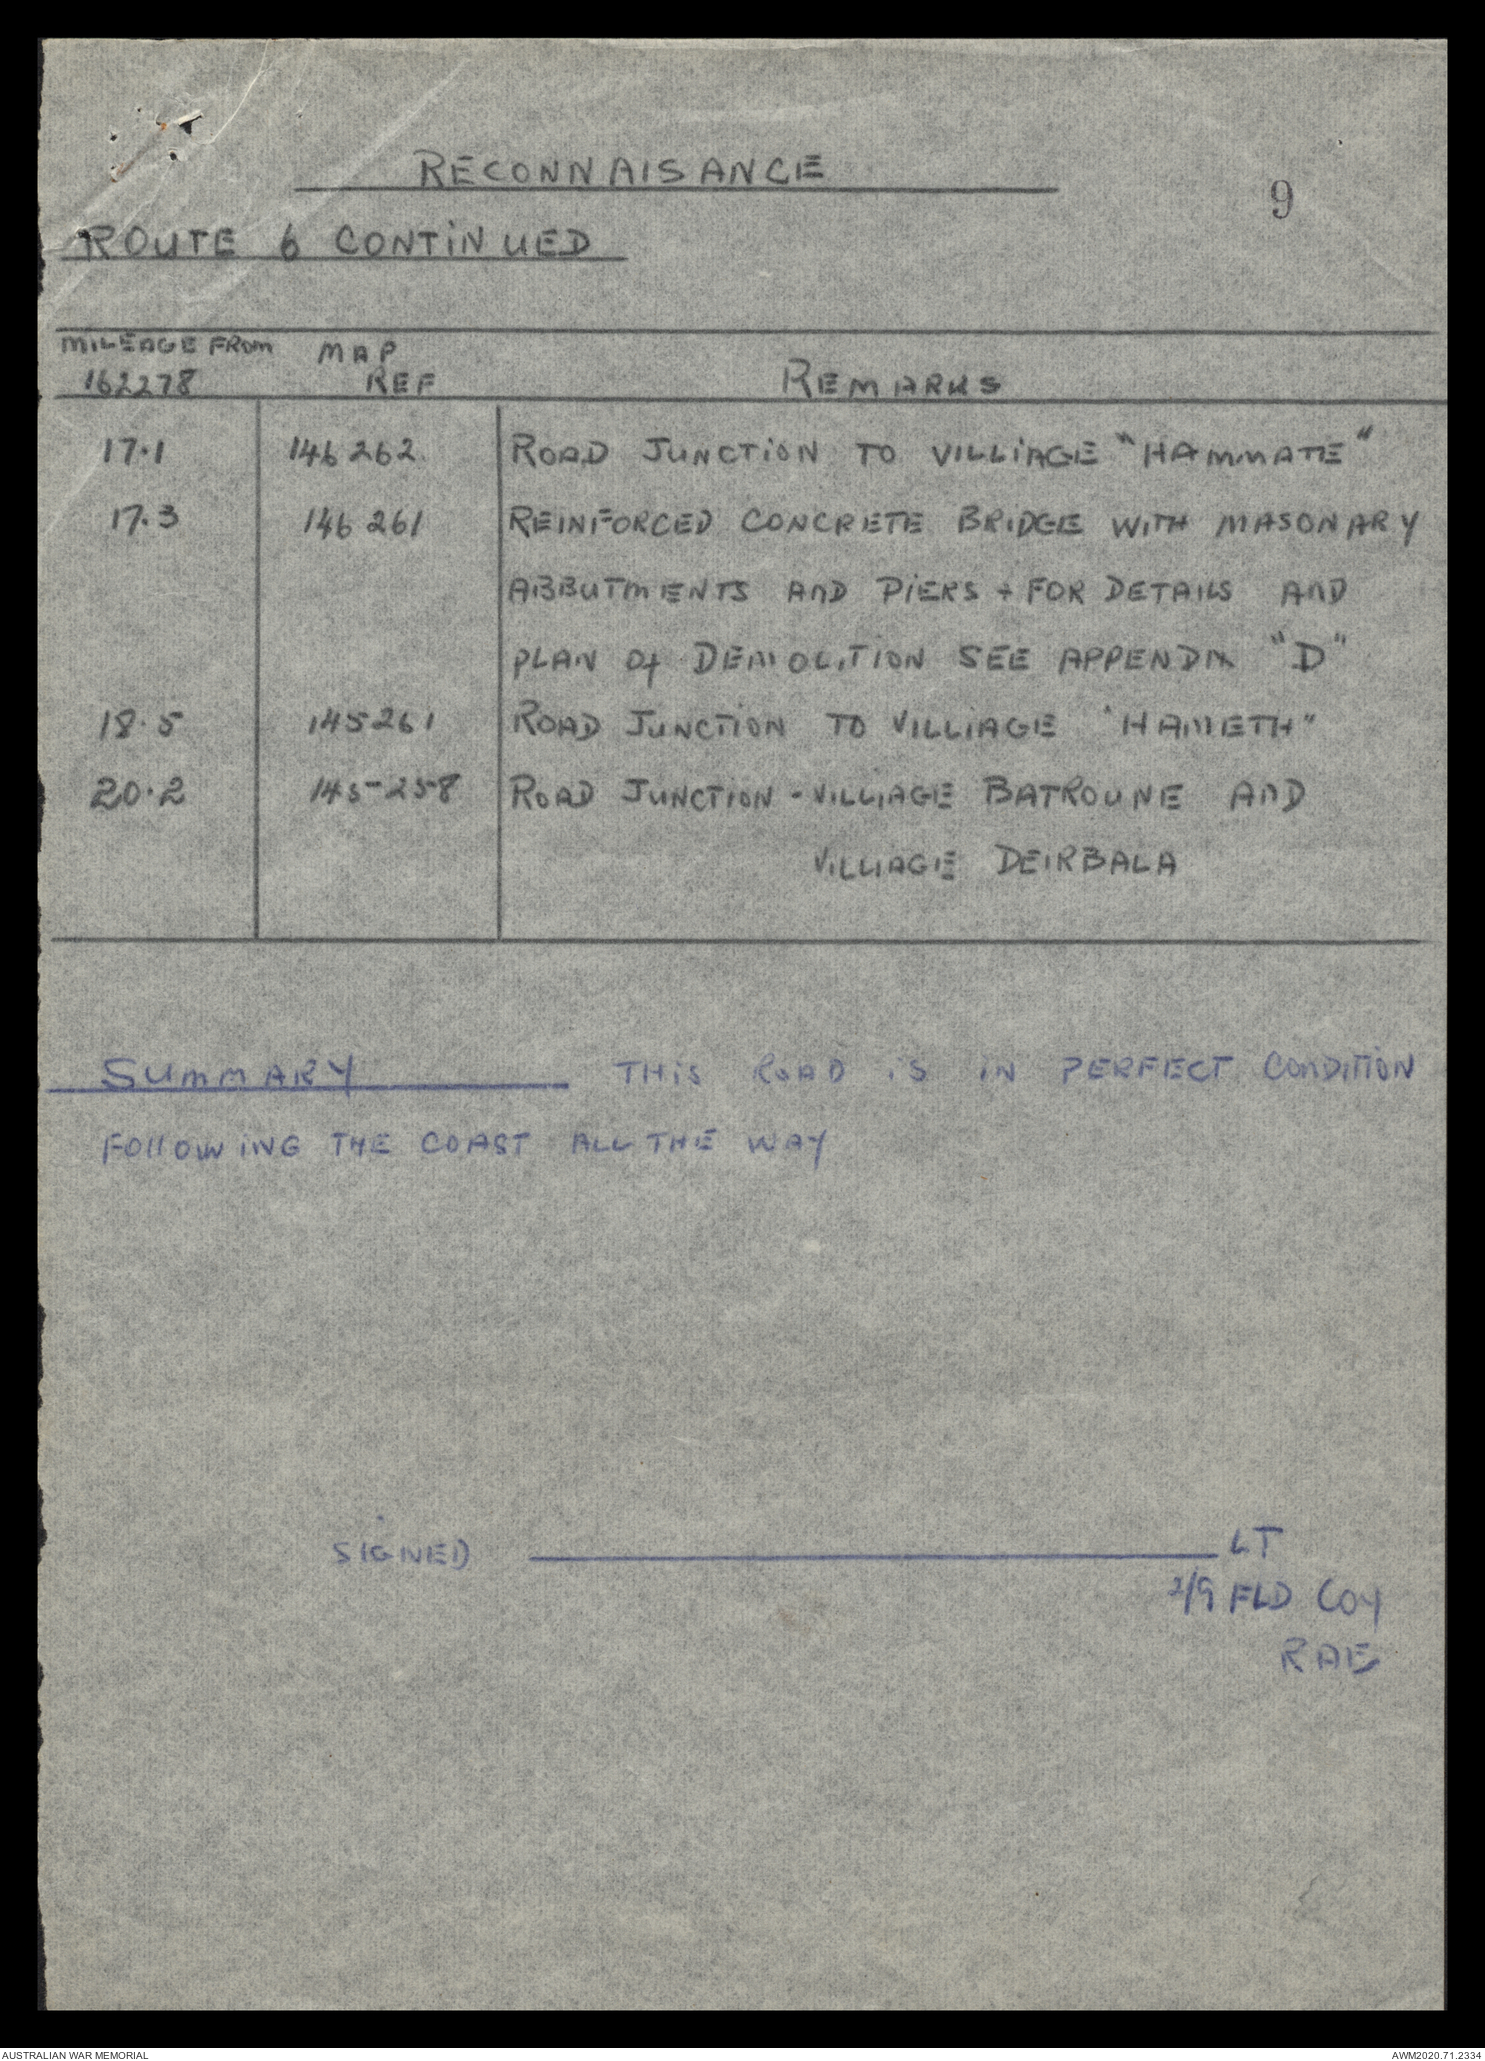 RECONNAISANCE
9
ROUTE 6 CONTINUED
MILEAGE FROM MAP
162278 REF REMARKS
17.1 146262 ROAD JUNCTION TO VILLIAGE "HAMMATE"
17.3 146261 REINFORCED CONCRETE BRIDGE WITH MASONARY
ABBUTMENTS AND PIERS + FOR DETAILS AND
PLAN Of DEMOLITION SEE APPENDIX "D"
18.5 145261 ROAD JUNCTION TO VILLIAGE "HAMETH"
20.2 145258 ROAD JUNCTION - VILLIAGE BATROUNE AND
VILLIAGE DEIRBALA
SUMMARY THIS ROAD IS IN PERFECT CONDITION
FOLLOWING THE COAST ALL THE WAY
SIGNED LT
2/9 FLD COY
RAE
AUSTRALIAN WAR MEMORIAL
AWM2020.71.2334